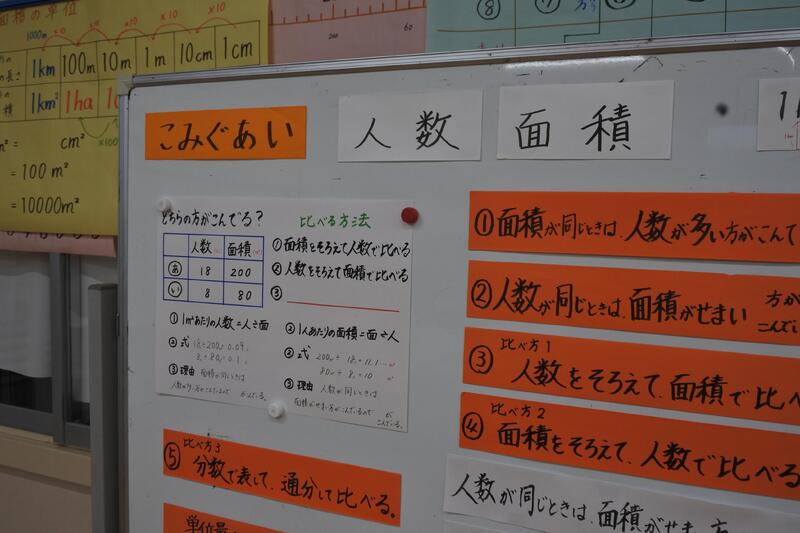 面積の単位
1000m ×10 ×10 ×10 ×10
1km 100m 10m 1m 10cm 1cm
1km² 1ha
= cm²
= 100m²
= 10000m²
240 60
こみぐあい
人数
面積
どちらの方がこんでる?
人数 面積
あ 18 200
い 8 80
比べる方法
①面積をそろえて人数で比べる
②人数をそろえて面積で比べる
③
①1m²あたりの人数=人÷面
②式
③理由 面積が同じときは
②1人あたりの面積=面÷人
②式
③理由 人数が同じときは
面積がせまい方がこんでいるので
こんでいる。
①面積が同じときは、人数が多い方がこんで
②人数が同じときは、面積がせまい
方が
こんでい
③比べ方1
人数をそろえて、面積で比べ
④比べ方2
面積をそろえて、人数で比べる
⑤比べ方3
分数で表して、通分して比べる。
人数が同じときは、面積がせまい方
単位量